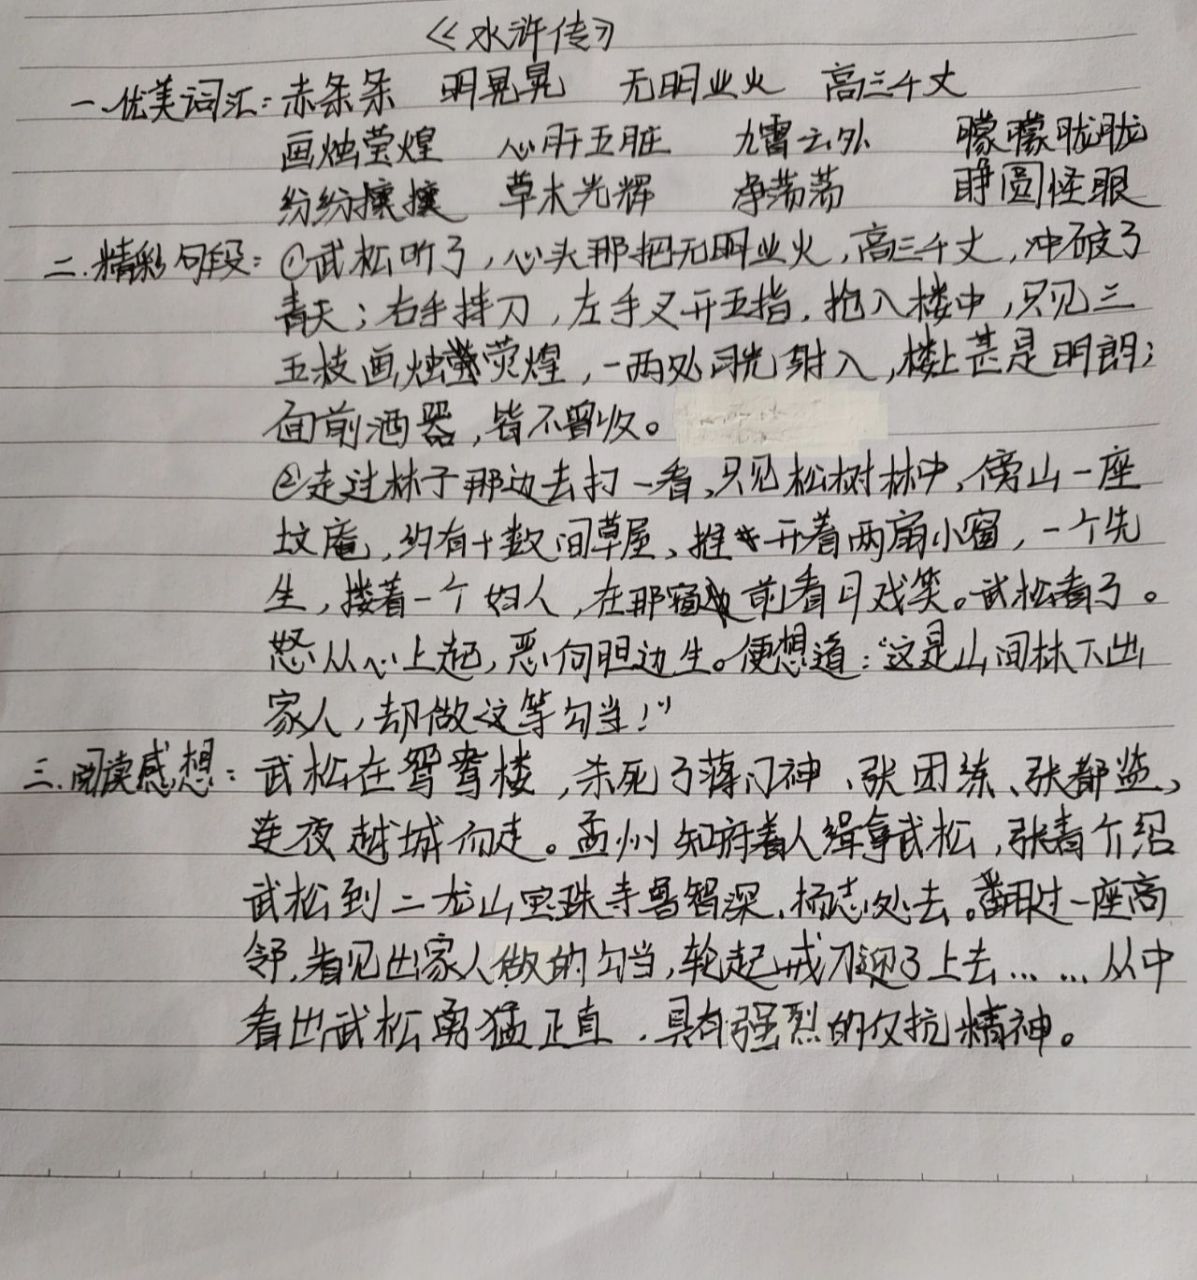 《水浒传》
一.优美词汇:赤条条 明晃晃 无明业火 高三千丈
画烛莹煌 心肝五脏 九霄云外 朦朦胧胧
纷纷攘攘 草木光辉 净荡荡 睁圆怪眼
二.精彩句段:①武松听了,心头那把无明业火,高三千丈,冲破了
青天;右手持刀,左手叉开五指,抢入楼中,只见三
五枝画烛荧煌,一两处月光射入,楼上甚是明朗;
面前酒器,皆不曾收。
②走过林子那边去打一看,只见松树林中,傍山一座
坟庵,约有十数间草屋、推开着两扇小窗,一个先
生,搂着一个妇人,在那窗前看月戏笑。武松看了。
怒从心上起,恶向胆边生。便想道:“这是山间林下出
家人,却做这等勾当!”
三.阅读感想:武松在鸳鸯楼,杀死了蒋门神、张团练、张都监、
连夜越城而走。孟州知府着人缉拿武松,张青介绍
武松到二龙山宝珠寺鲁智深、杨志处去。翻过一座高
邻,看见出家人做的勾当,轮起戒刀迎了上去……从中
看出武松勇猛正直、具有强烈的反抗精神。